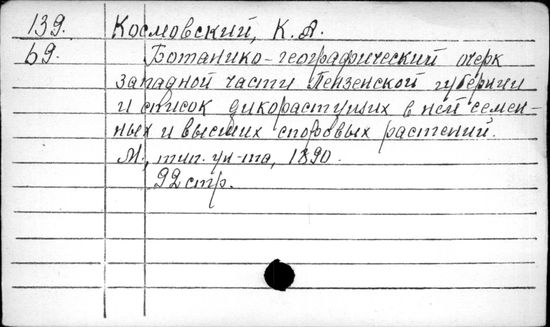 139. Космовский, К. А.
69. Ботанико-географический очерк
западной части Пензенской губернии
и список дикорастущих в ней семен-
ных и высших споровых растений.
М., тип. ун-та, 1890.
92 стр.